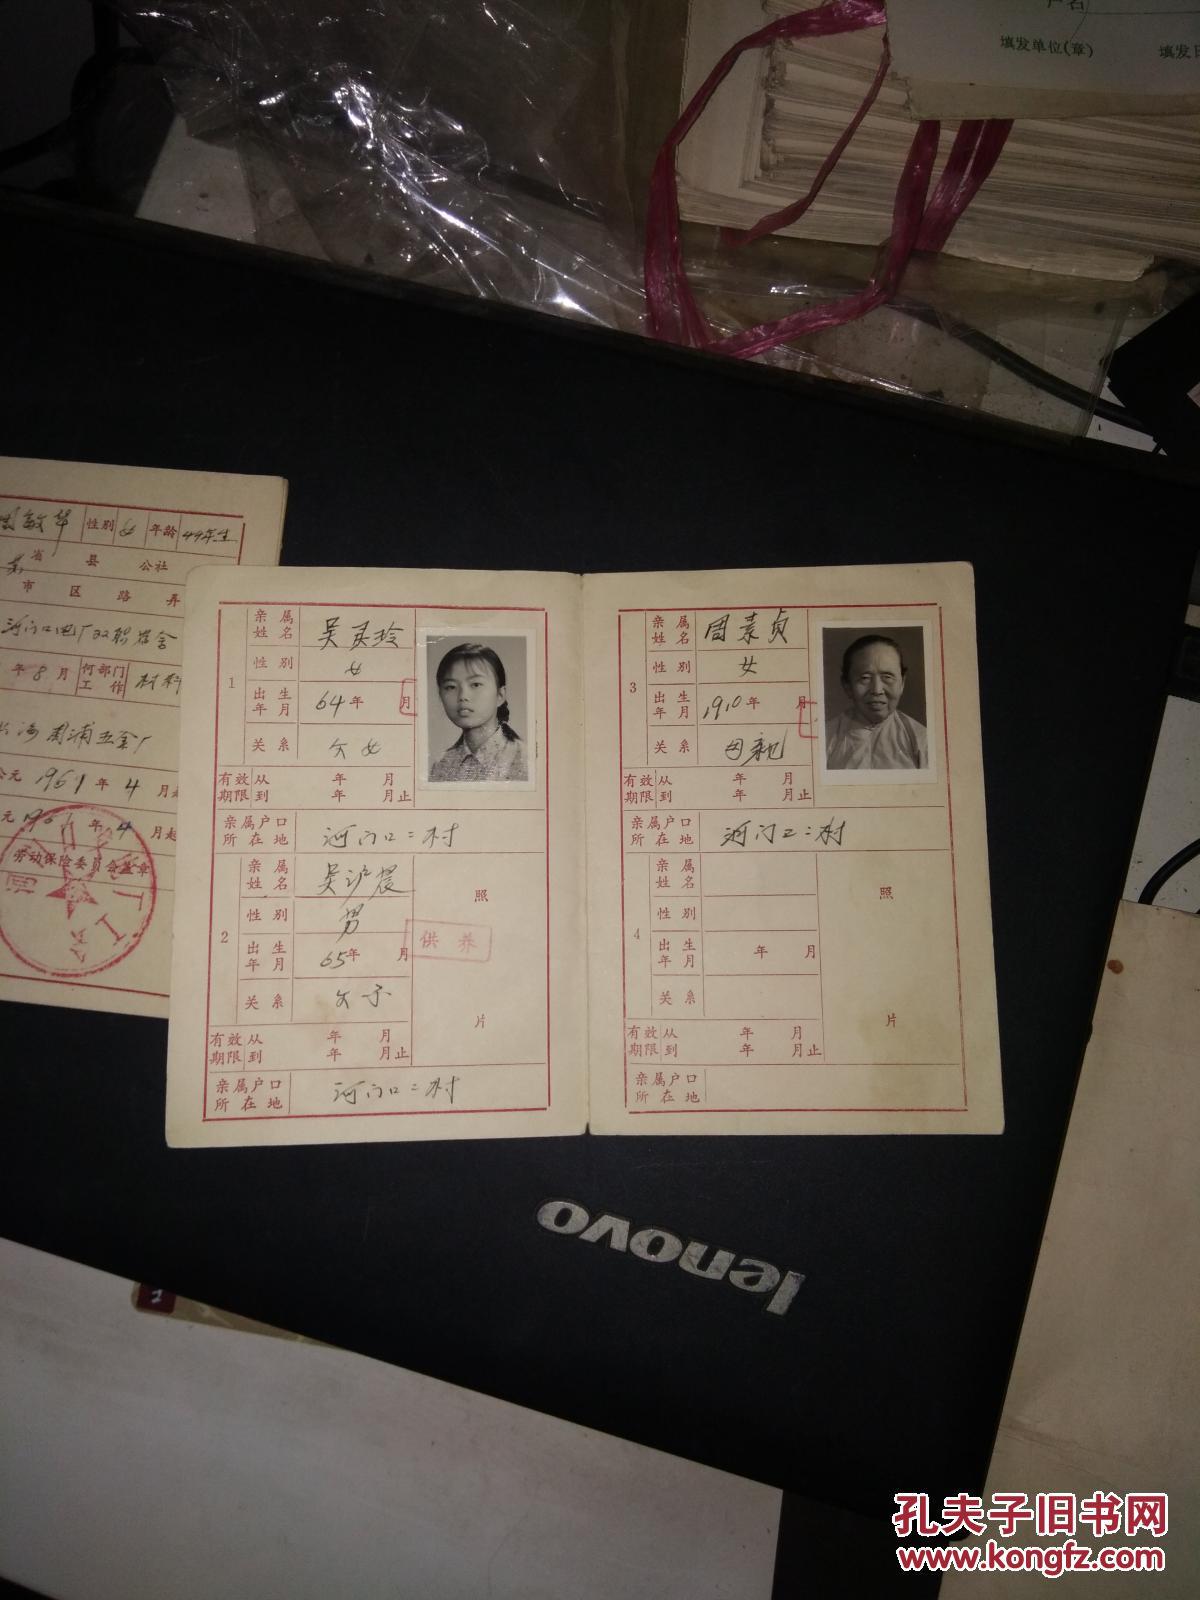 户名
填发单位(章)
填发日
周敏华 性别 女 年龄 44年生
省 县 公社
市 区 路 弄
河门口电厂双职宿舍
年 8 月 何部门工作 材料
周浦五金厂
公元 1961 年 4 月起
年 4 月起
劳动保险委员会盖章
1
亲属姓名 吴灵玲
性别 女
出生年月 64年 月
关系 父女
有效期限 从 年 月
到 年 月止
亲属户口所在地 河门口二村
2
亲属姓名 吴沪晨
性别 男
出生年月 65年 月
关系 父子
照片
供养
有效期限 从 年 月
到 年 月止
亲属户口所在地 河门口二村
3
亲属姓名 周素贞
性别 女
出生年月 1910年 月
关系 母亲
有效期限 从 年 月
到 年 月止
亲属户口所在地 河门口二村
4
亲属姓名
性别
出生年月 年 月
关系
照片
有效期限 从 年 月
到 年 月止
亲属户口所在地
lenovo
孔夫子旧书网
www.kongfz.com